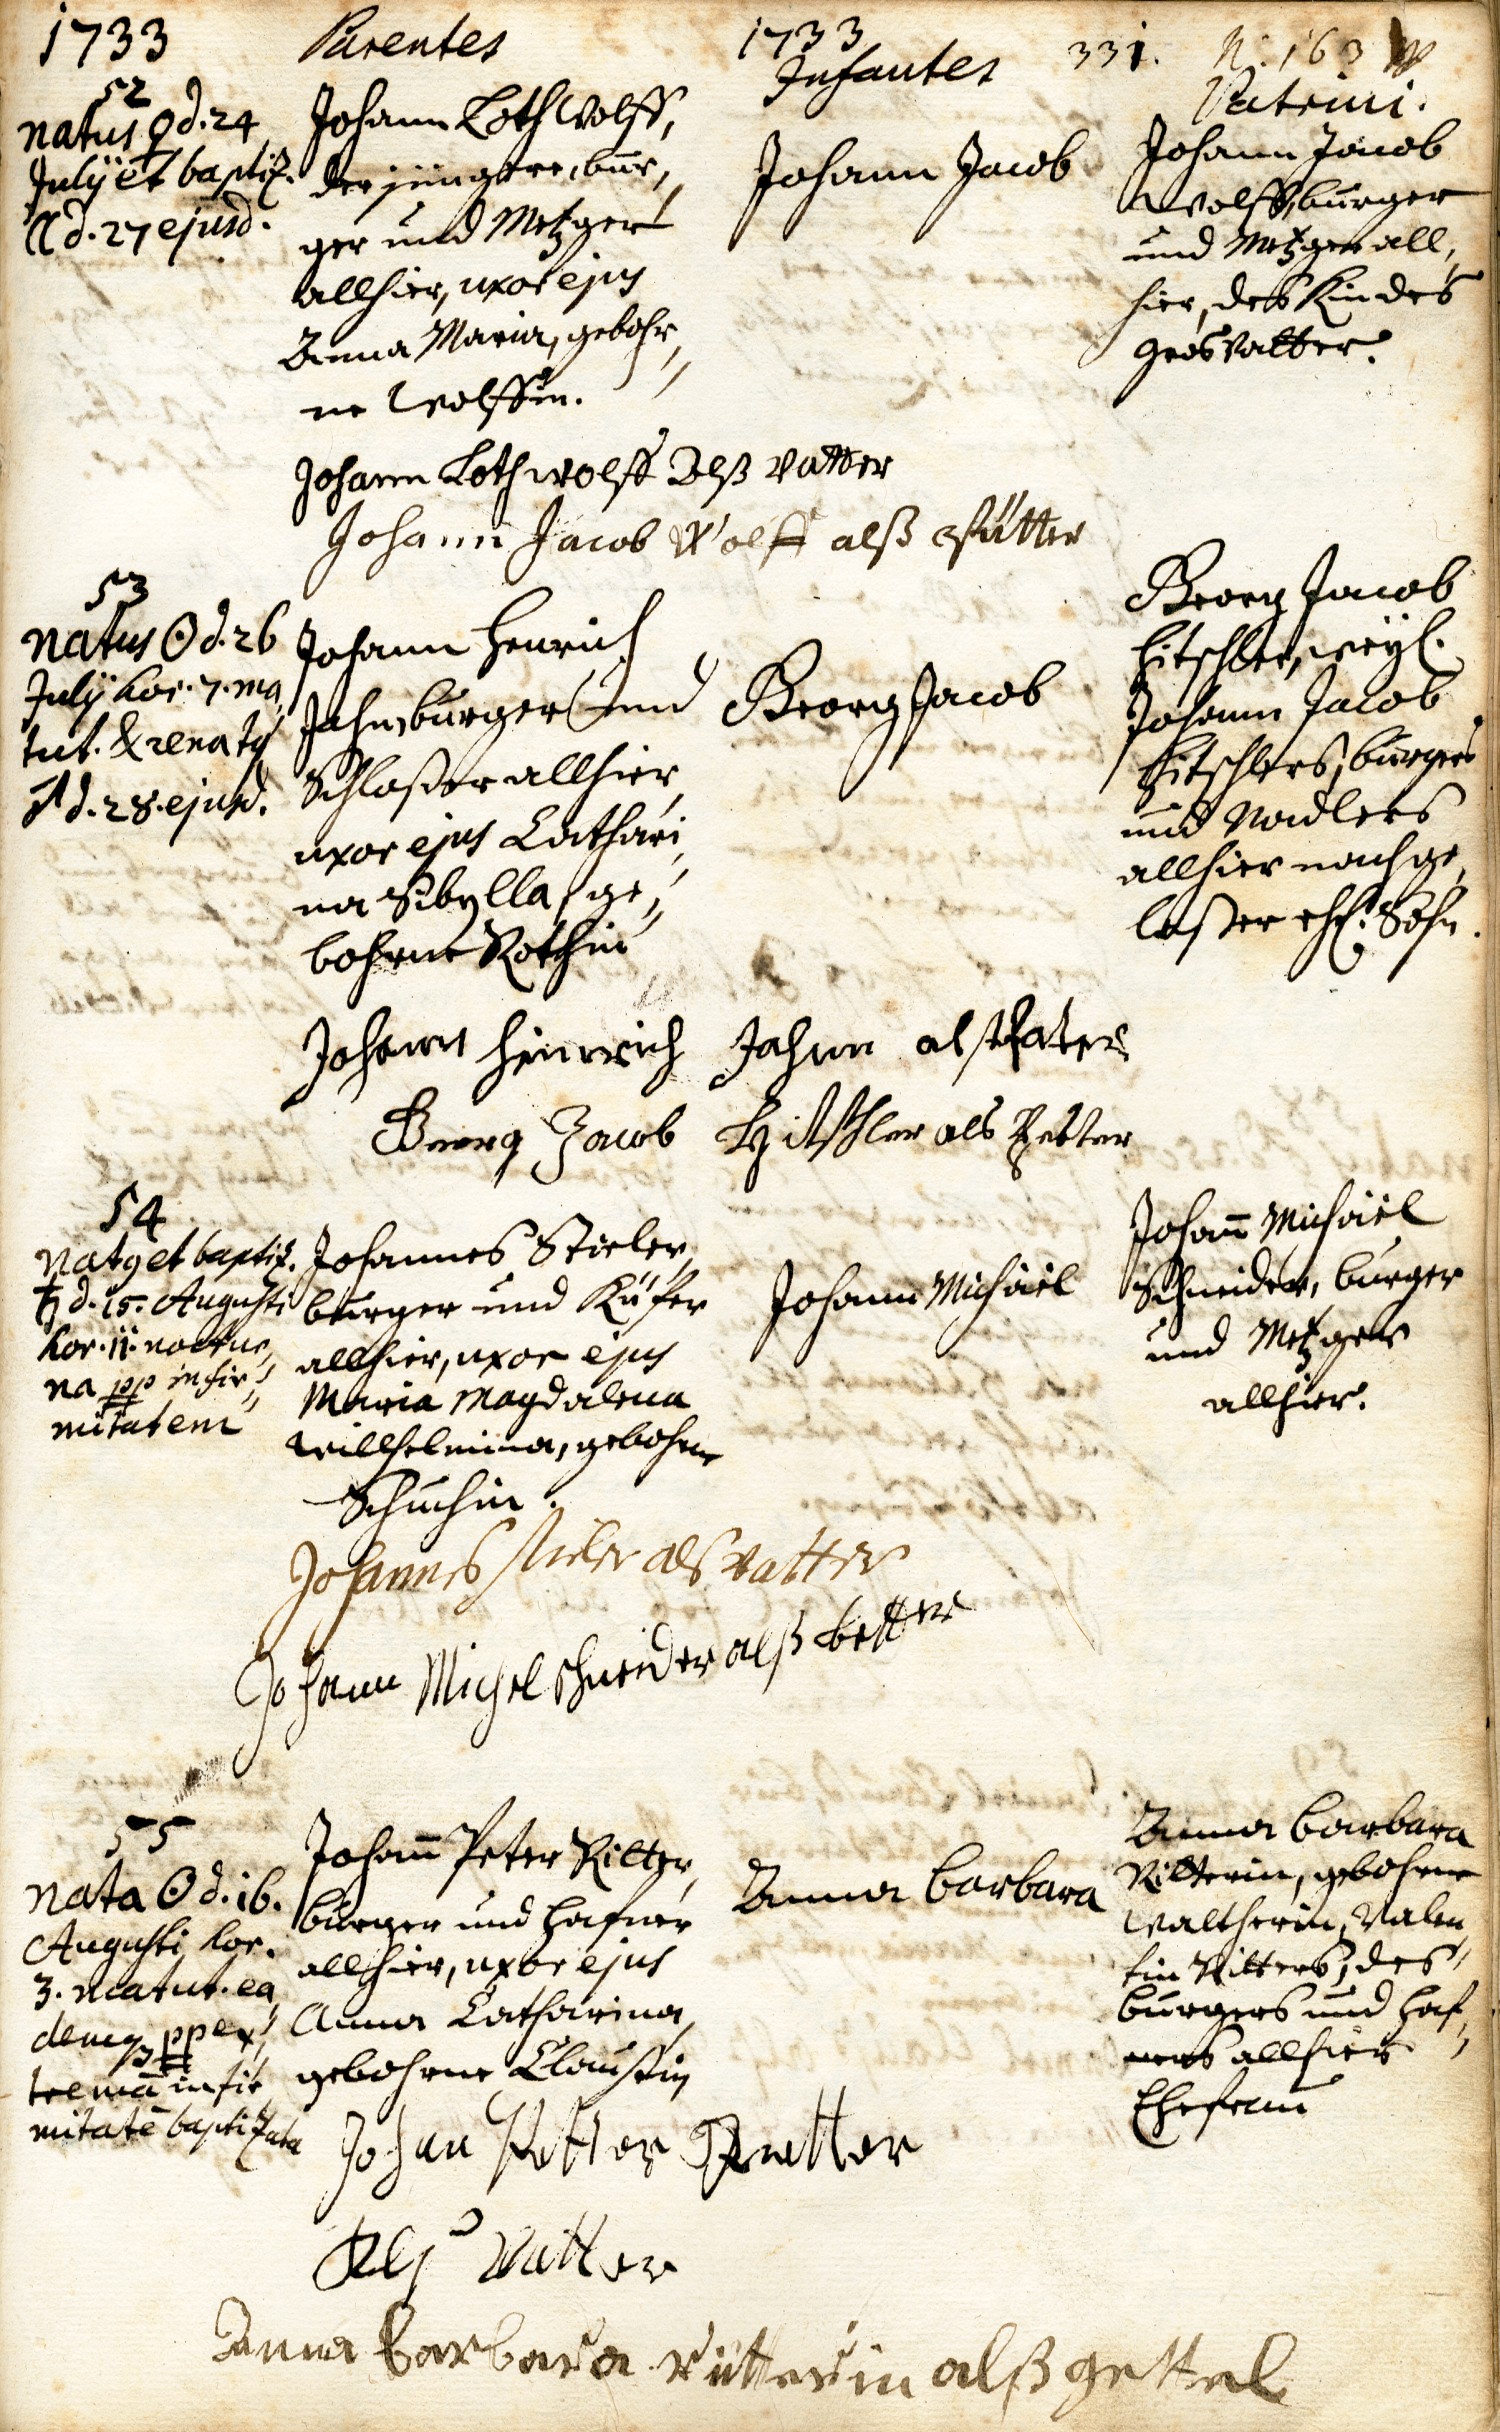 1733
Parentes
1733
Infantes
331.
N. 163
Patrini.
52
natus ♀ d. 24
Julÿ et baptiz.
☾ d. 27 ejusd.
Johann Loth Wolff,
der jüngere, bur,
ger und Metzger
allhier, uxor ejus
Anna Maria, gebohr,,
ne Wolffin.
Johann Jacob
Johann Jacob
Wolff, burger
und Metzger all,
hier, des Kindes
Grosvatter.
Johann Loth wolff Alß vatter
Johann Jacob Wolff alß
53
natus ☉ d. 26
Julÿ hor. 7. ma,
tut. & renatq
♂ d. 28. ejusd.
Johann Henrich
Jahn, burger und
Schloßer allhier,
uxor ejus Cathari,,
na Sibylla, ge,,
bohrne Rothin
Georg Jacob
Georg Jacob
Hitschler, weyl.
Johann Jacob
Hitschlers, burgers
und Nadlers
allhier nachge,
laßer ehl. Sohn.
Johann Hinnrich Jahnn alst Vater
Georg Jacob Hitschler als Petter
54
Natq et baptiz.
♄ d. 15. Augusti
hor. 11. noctur,,
na pp infir,,
mitatem
Johannes Stieler,
burger und Küfer
allhier, uxor ejus
Maria Magdalena
Willhelmina, gebohrne
Schuchin.
Johann Michäel
Johan̄ Michäel
Schneider, burger
und Metzger
allhier.
Johannes stieler als vatter
Johann Michel schneider alß bettter
55
Nata ☉ d. 16.
Augusti, hor.
3. matut. ea,
demq pp ex,,
tremā infir,
mitatē baptizata
Johan̄ Peter Ritter,
burger und Hafner
allhier, uxor ejus
Anna Catharina,
gebohrne Claußin
Anna Barbara
Anna Barbara
Ritterin, gebohrne
Waltherin, Valen,
tin Ritters, des
burgers und Haf,,
ners allhier
Ehefrau
Johan Petter Rietter
Alß Vatter
Anna Barbara rütterin alß gettel